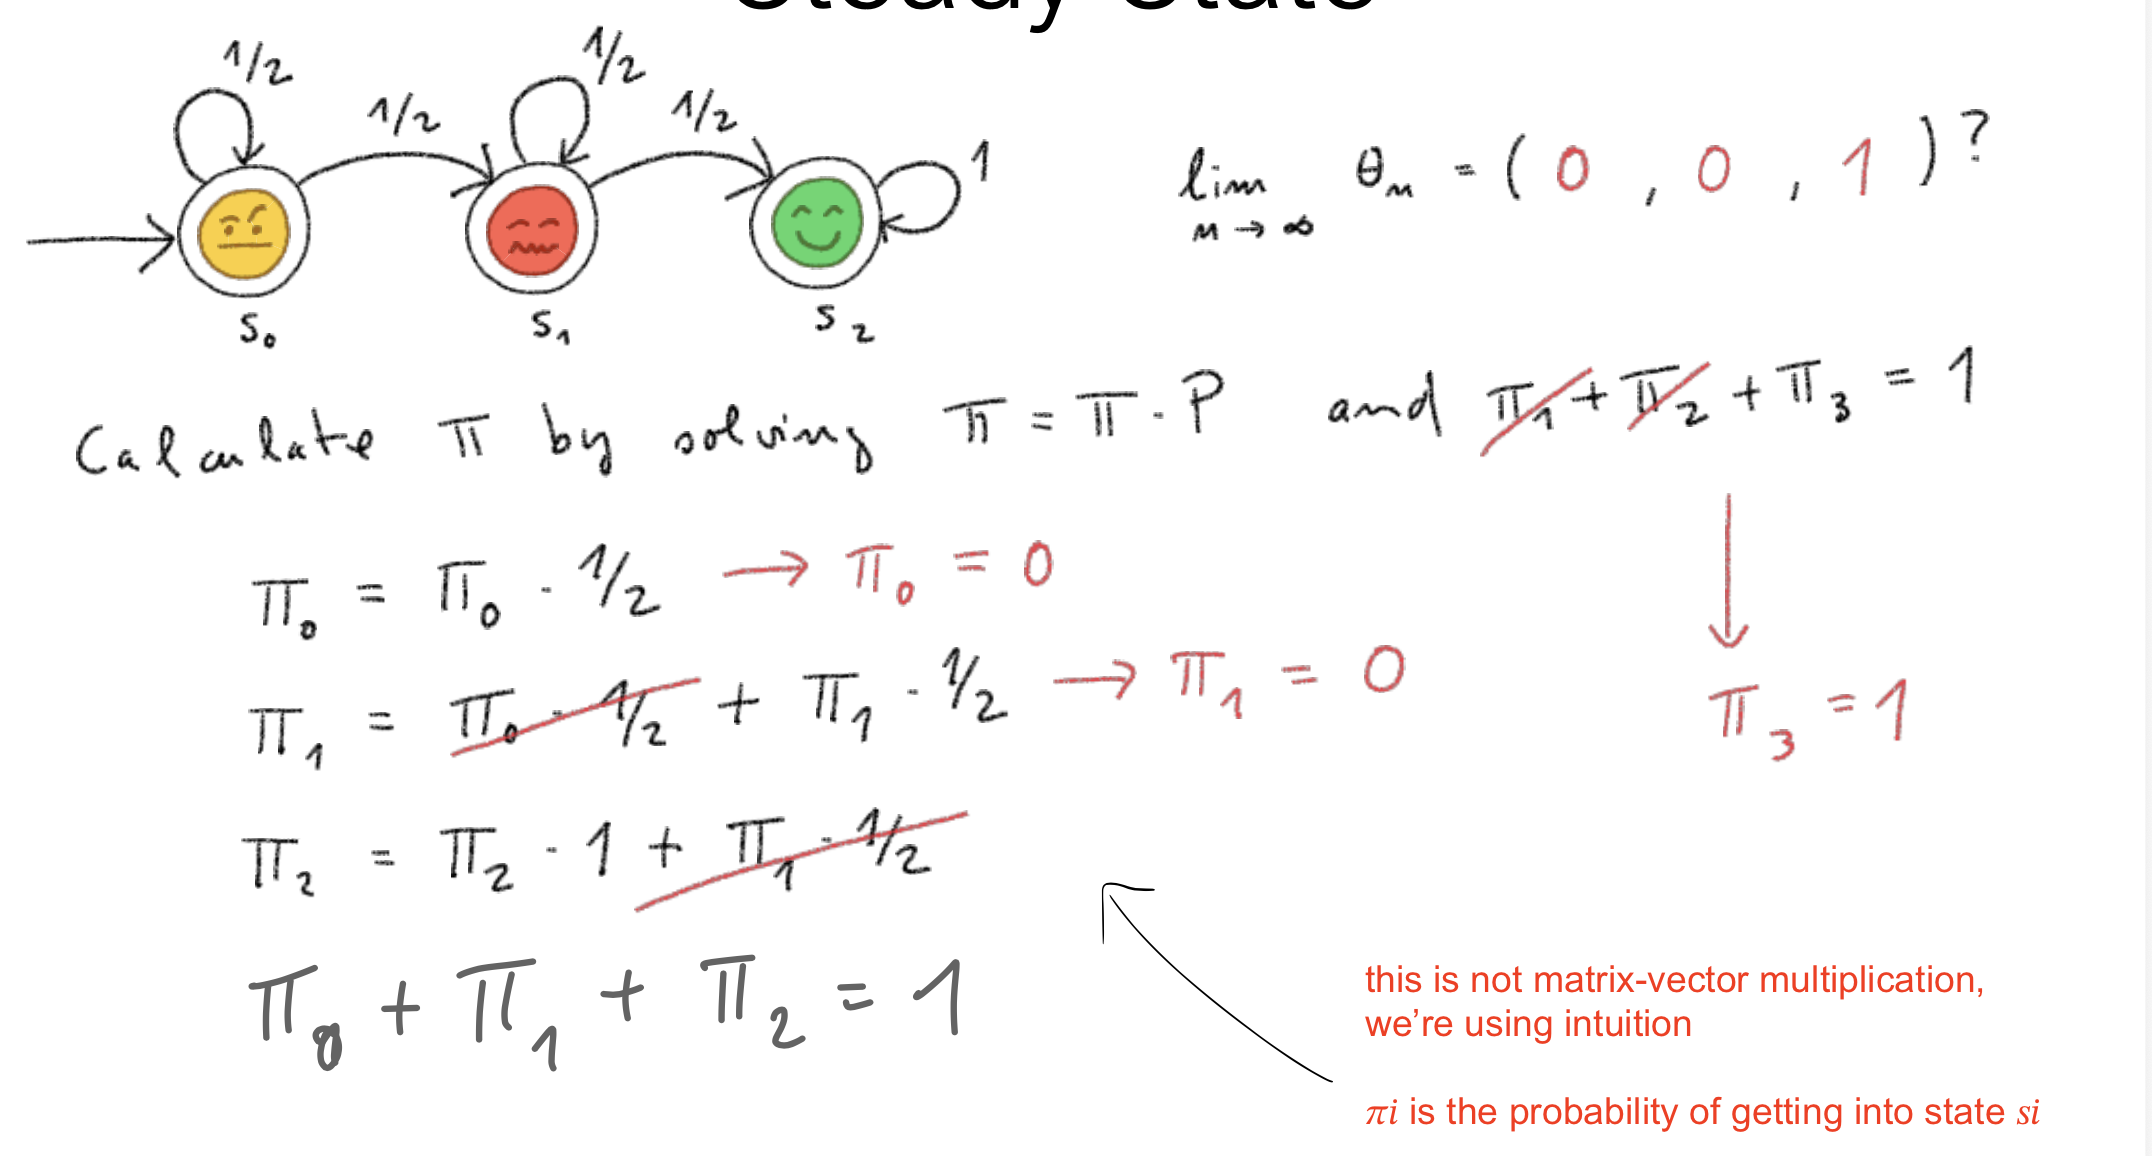 Steady State
1/2 1/2 1/2 1/2 1
s₀ s₁ s₂
lim θₙ = ( 0 , 0 , 1 ) ?
n → ∞
Calculate π by solving π = π · P and π₁ + π₂ + π₃ = 1
π₀ = π₀ · 1/2 → π₀ = 0
π₁ = π₀ · 1/2 + π₁ · 1/2 → π₁ = 0
π₃ = 1
π₂ = π₂ · 1 + π₁ · 1/2
π₀ + π₁ + π₂ = 1
this is not matrix-vector multiplication,
we’re using intuition
πi is the probability of getting into state si